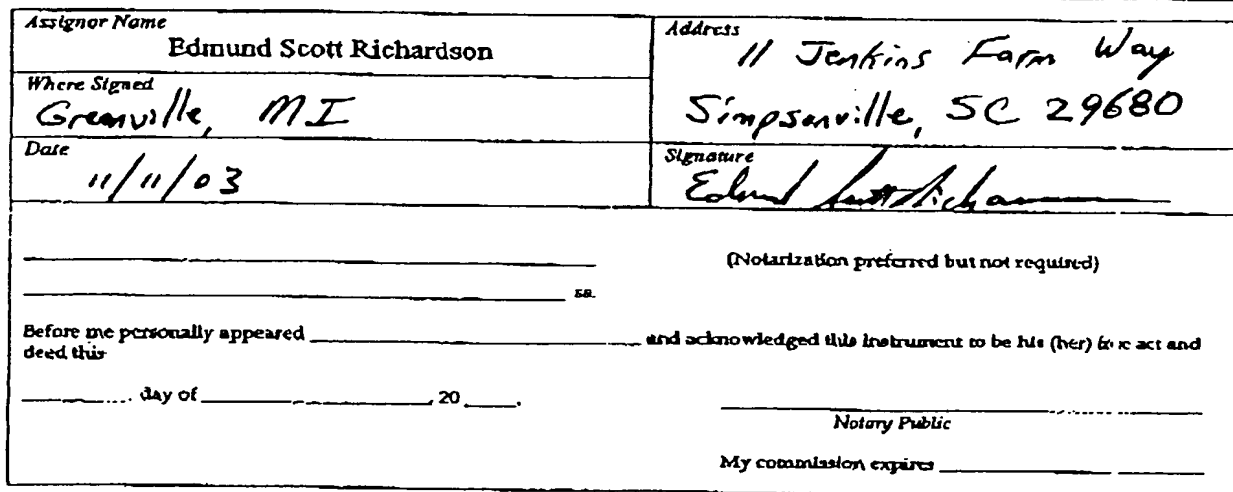 Assignor Name
Edmund Scott Richardson
Address
11 Jenkins Farm Way
Simpsonville, SC 29680
Where Signed
Greenville, MI
Date
11/11/03
Signature
Edmund Scott Richardson
(Notarization preferred but not required)
ss.
Before me personally appeared ____________ and acknowledged this instrument to be his (her) free act and
deed this
______ day of ____________, 20 ____.
Notary Public
My commission expires ____________